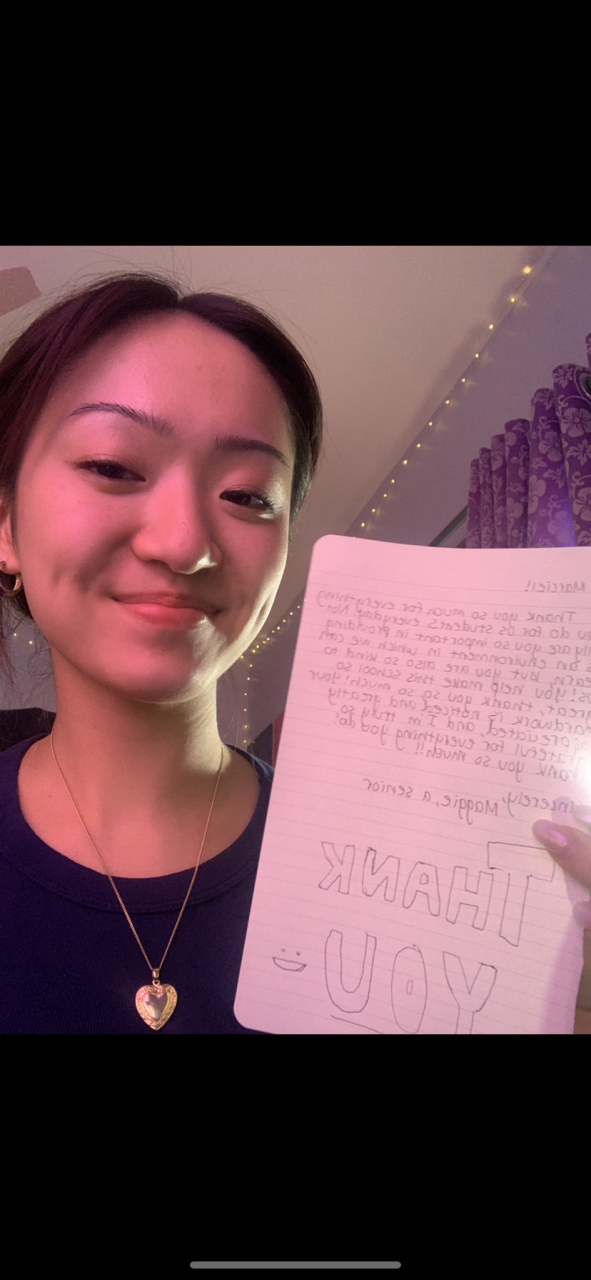 Marciel!
Thank you so much for everything
you do for us students everyday. Not
only are you so important in providing
us an environment in which we can
learn, but you are also so kind to
us! You help make this school so
great, thank you so so much! Your
hardwork is noticed and greatly
appreciated, and I'm truly so
grateful for everything you do!
Thank you so much!!
Sincerely, Maggie, a senior
THANK
YOU